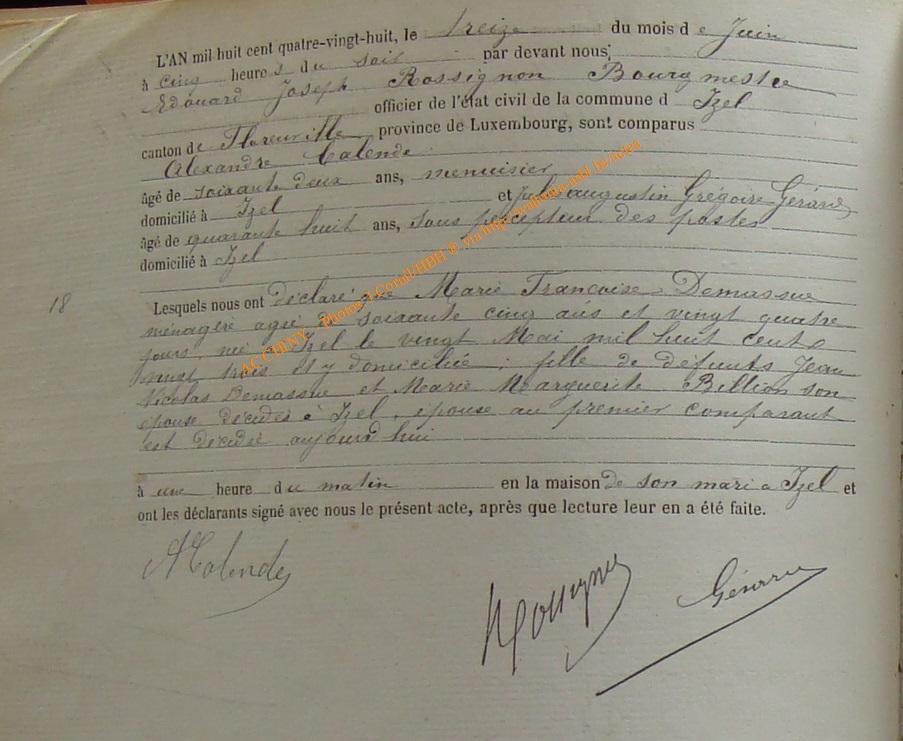 L'AN mil huit cent quatre-vingt-huit, le treize du mois de Juin
à cinq heures du soir par devant nous;
Edouard Joseph Rossignon Bourgmestre
officier de l'état civil de la commune d Izel
canton de Florenville province de Luxembourg, sont comparus
Alexandre Calende
âgé de soixante deux ans, menuisier
domicilié à Izel et Jules augustin Grégoire Gérard
âgé de quarante huit ans, sous percepteur des postes
domicilié à Izel
18
Lesquels nous ont déclaré que Marie Françoise Demassue
ménagère agée de soixante cinq ans et vingt quatre
jours, née à Izel le vingt Mai mil huit cent
vingt trois et y domiciliée; fille de défunts Jean
Nicolas Demassue et Marie Marguerite Billion son
épouse décédés à Izel, épouse au premier comparant
est décédée aujourd hui
à une heure du matin en la maison de son mari à Izel et
ont les déclarants signé avec nous le présent acte, après que lecture leur en a été faite.
ACalende
Rossignon
Gérard